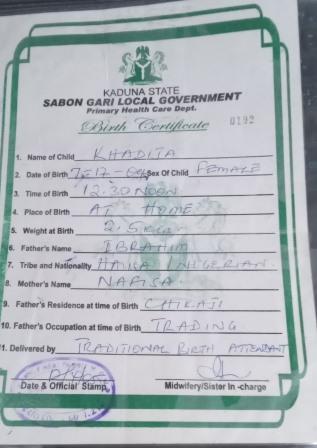 KADUNA STATE
SABON GARI LOCAL GOVERNMENT
Primary Health Care Dept.
Birth Certificate 0192
1. Name of Child KHADITA
2. Date of Birth Sex Of Child FEMALE
3. Time of Birth 12.30 NOON
4. Place of Birth AT HOME
5. Weight at Birth 2.5kg
6. Father's Name IBRAHIM
7. Tribe and Nationality HAUSA NIGERIAN
8. Mother's Name NAFISA
9. Father's Residence at time of Birth CHIKAJI
10. Father's Occupation at time of Birth TRADING
11. Delivered by TRADITIONAL BIRTH ATTENDANT
Date & Official Stamp Midwifery/Sister In -charge